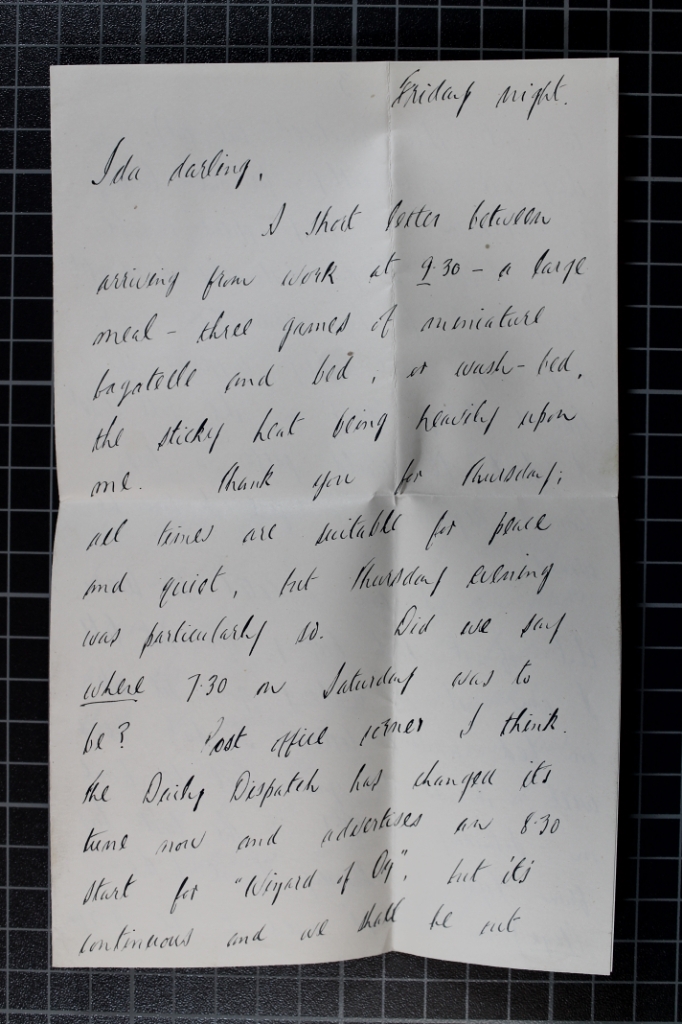 Friday night.
Ida darling,
A short letter between
arriving from work at 9.30 - a large
meal - three games of miniature
bagatelle and bed, or wash-bed,
the sticky heat being heavily upon
me. Thank you for Thursday;
all times are suitable for peace
and quiet, but Thursday evening
was particularly so. Did we say
where 7.30 on Saturday was to
be? Post office corner I think.
The Daily Dispatch has changed its
tune now and advertises an 8.30
start for "Wizard of Oz", but it's
continuous and we shall be out